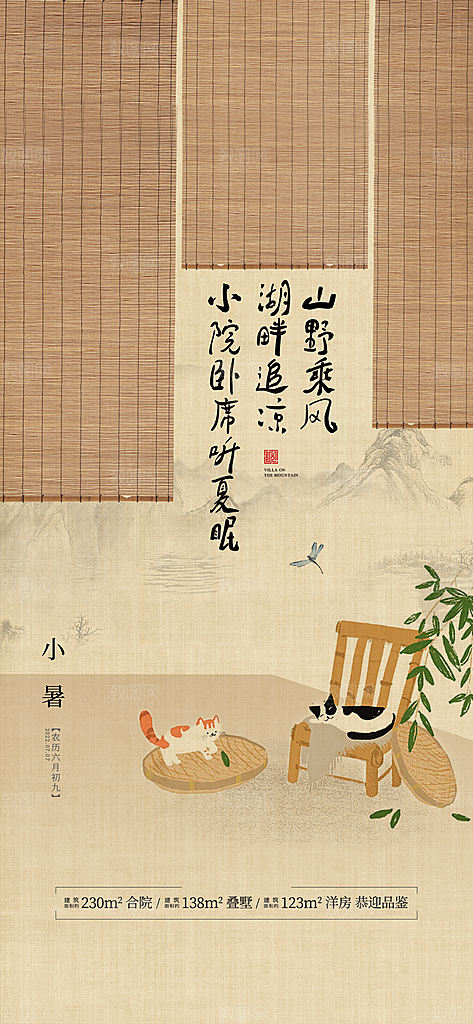 山野乘风
湖畔追凉
小院卧席听夏眠
VILLA ON
THE MOUNTAIN
小暑
【农历六月初九】
2022.07.07
建筑面积约 230m² 合院 / 建筑面积约 138m² 叠墅 / 建筑面积约 123m² 洋房 恭迎品鉴